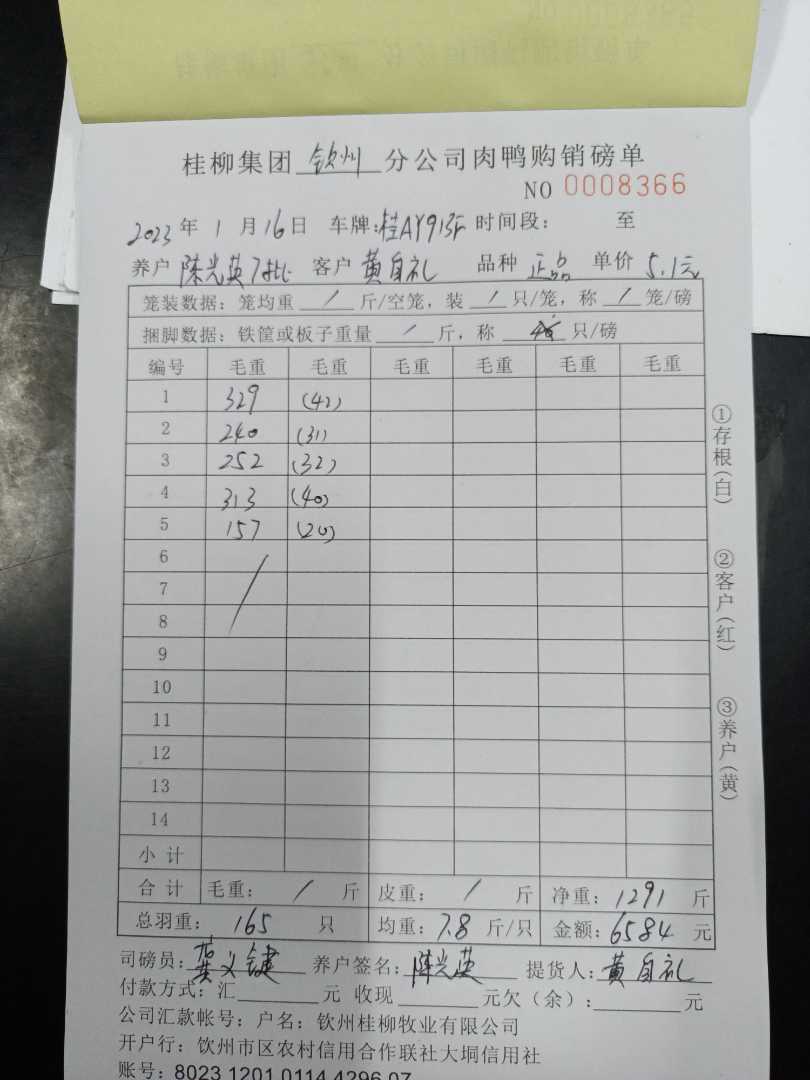 桂柳集团 钦州 分公司肉鸭购销磅单
NO 0008366
2023 年 1 月 16 日 车牌: 桂AY913F 时间段: 至
养户 陈光英7批 客户 黄自礼 品种 正品 单价 5.1元
笼装数据: 笼均重 / 斤/空笼, 装 / 只/笼, 称 / 笼/磅
捆脚数据: 铁筐或板子重量 / 斤, 称 只/磅
编号 毛重 毛重 毛重 毛重 毛重 毛重
1 329 (42)
2 240 (31)
3 252 (32)
4 313 (40)
5 157 (20)
6
7
8
9
10
11
12
13
14
小计
合计 毛重: / 斤 皮重: / 斤 净重: 1291 斤
总羽重: 165 只 均重: 7.8 斤/只 金额: 6584 元
司磅员: 龚义键 养户签名: 陈光英 提货人: 黄自礼
付款方式: 汇 元 收现 元欠(余): 元
公司汇款帐号: 户名: 钦州桂柳牧业有限公司
开户行: 钦州市区农村信用合作联社大垌信用社
账号: 8023 1201 0114 4296 07
①存根(白)
②客户(红)
③养户(黄)